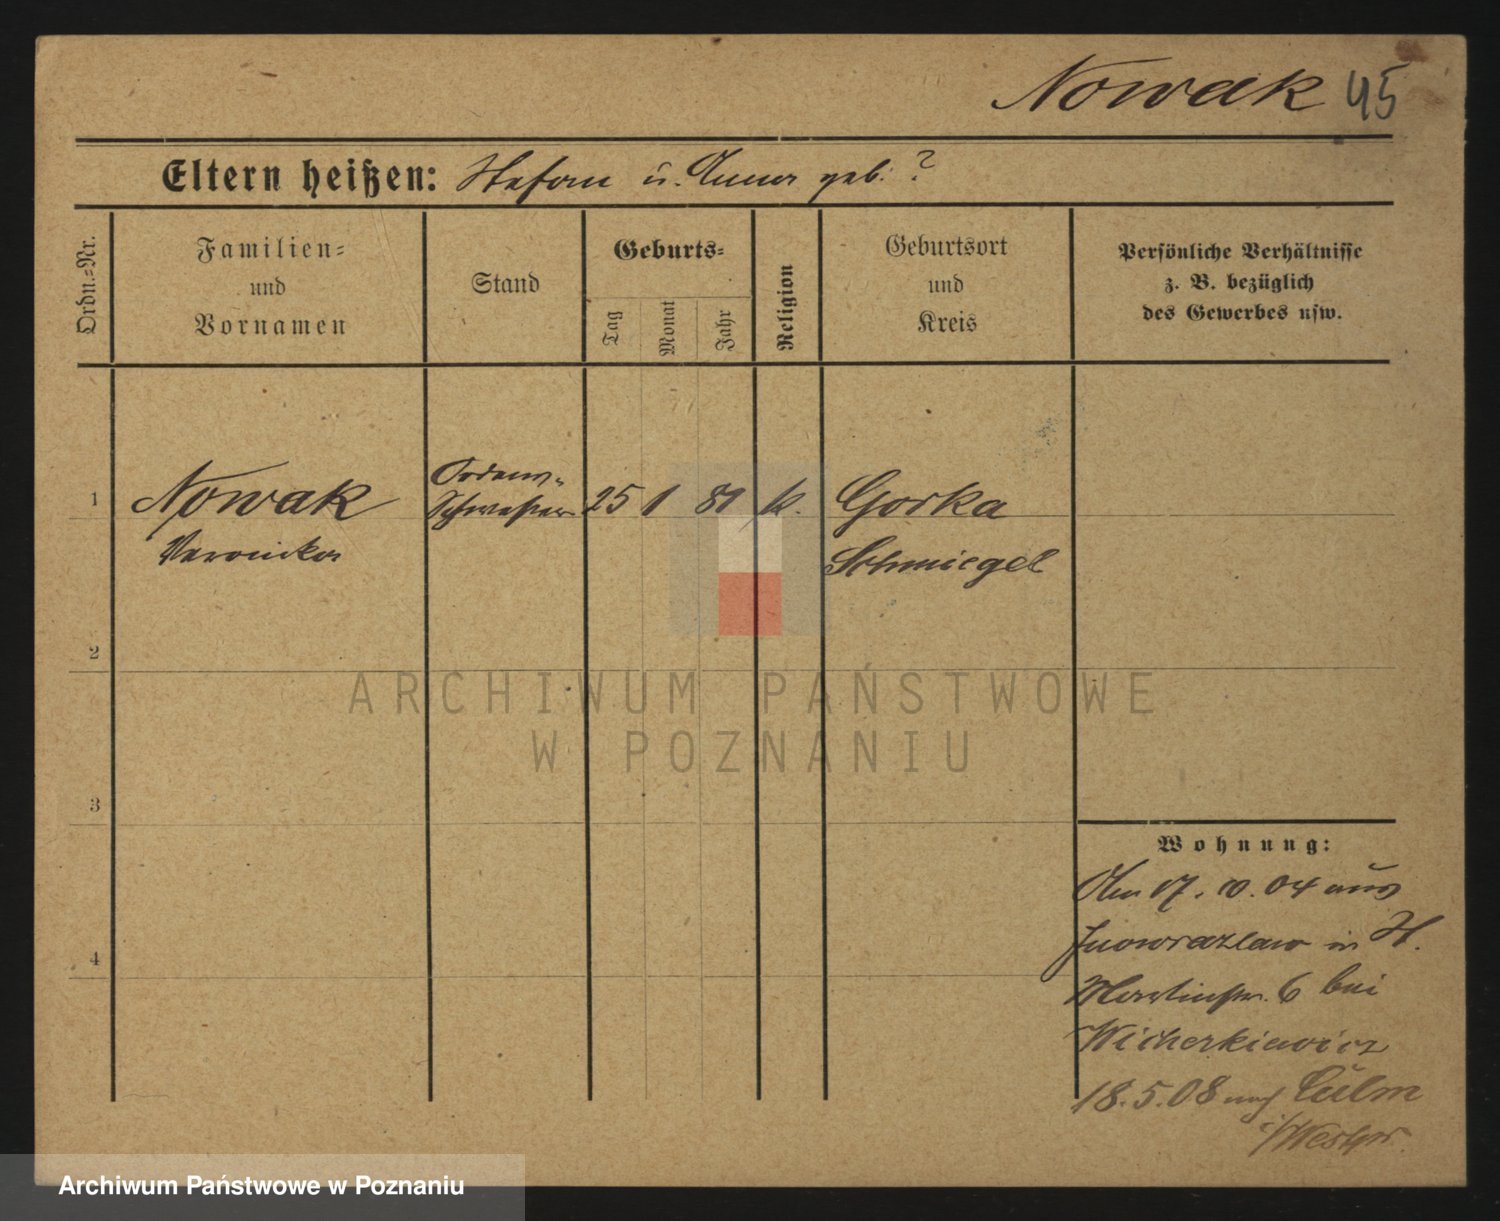 Nowak 45
Eltern heißen: Stefan u. Anna geb. ?
Ordn.-Nr.
Familien-
und
Vornamen
Stand
Geburts-
Tag
Monat
Jahr
Religion
Geburtsort
und
Kreis
Persönliche Verhältnisse
z. B. bezüglich
des Gewerbes usw.
Ordens-
1 Nowak Schwester 25 1 81 k. Gorka
Veronika Schmiegel
2
3
4
ARCHIWUM PAŃSTWOWE
W POZNANIU
Wohnung:
Am 17. 10. 04 aus
Inowrazlaw in St.
Martinstr. 6 bei
Wicherkiewicz
18.5.08 nach Culm
i/Westpr.
Archiwum Państwowe w Poznaniu